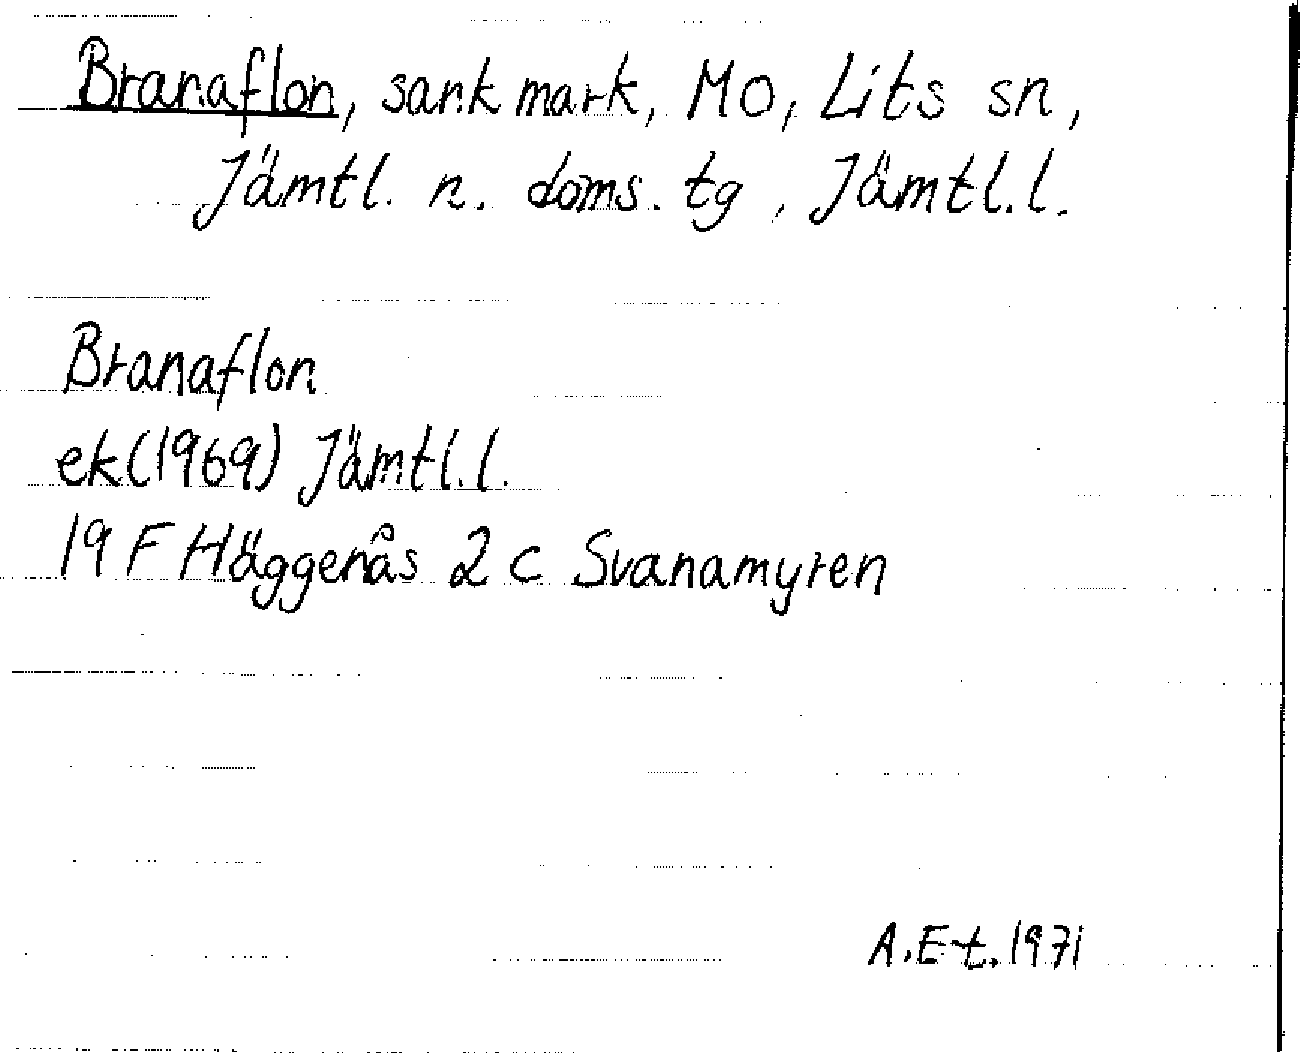 Branaflon, sank mark, MO, Lits sn,
Jämtl. n. doms. tg, Jämtl. l.
Branaflon
ek (1969) Jämtl. l.
19 F Häggenås 2 c Svanamyren
A. E-t. 1971